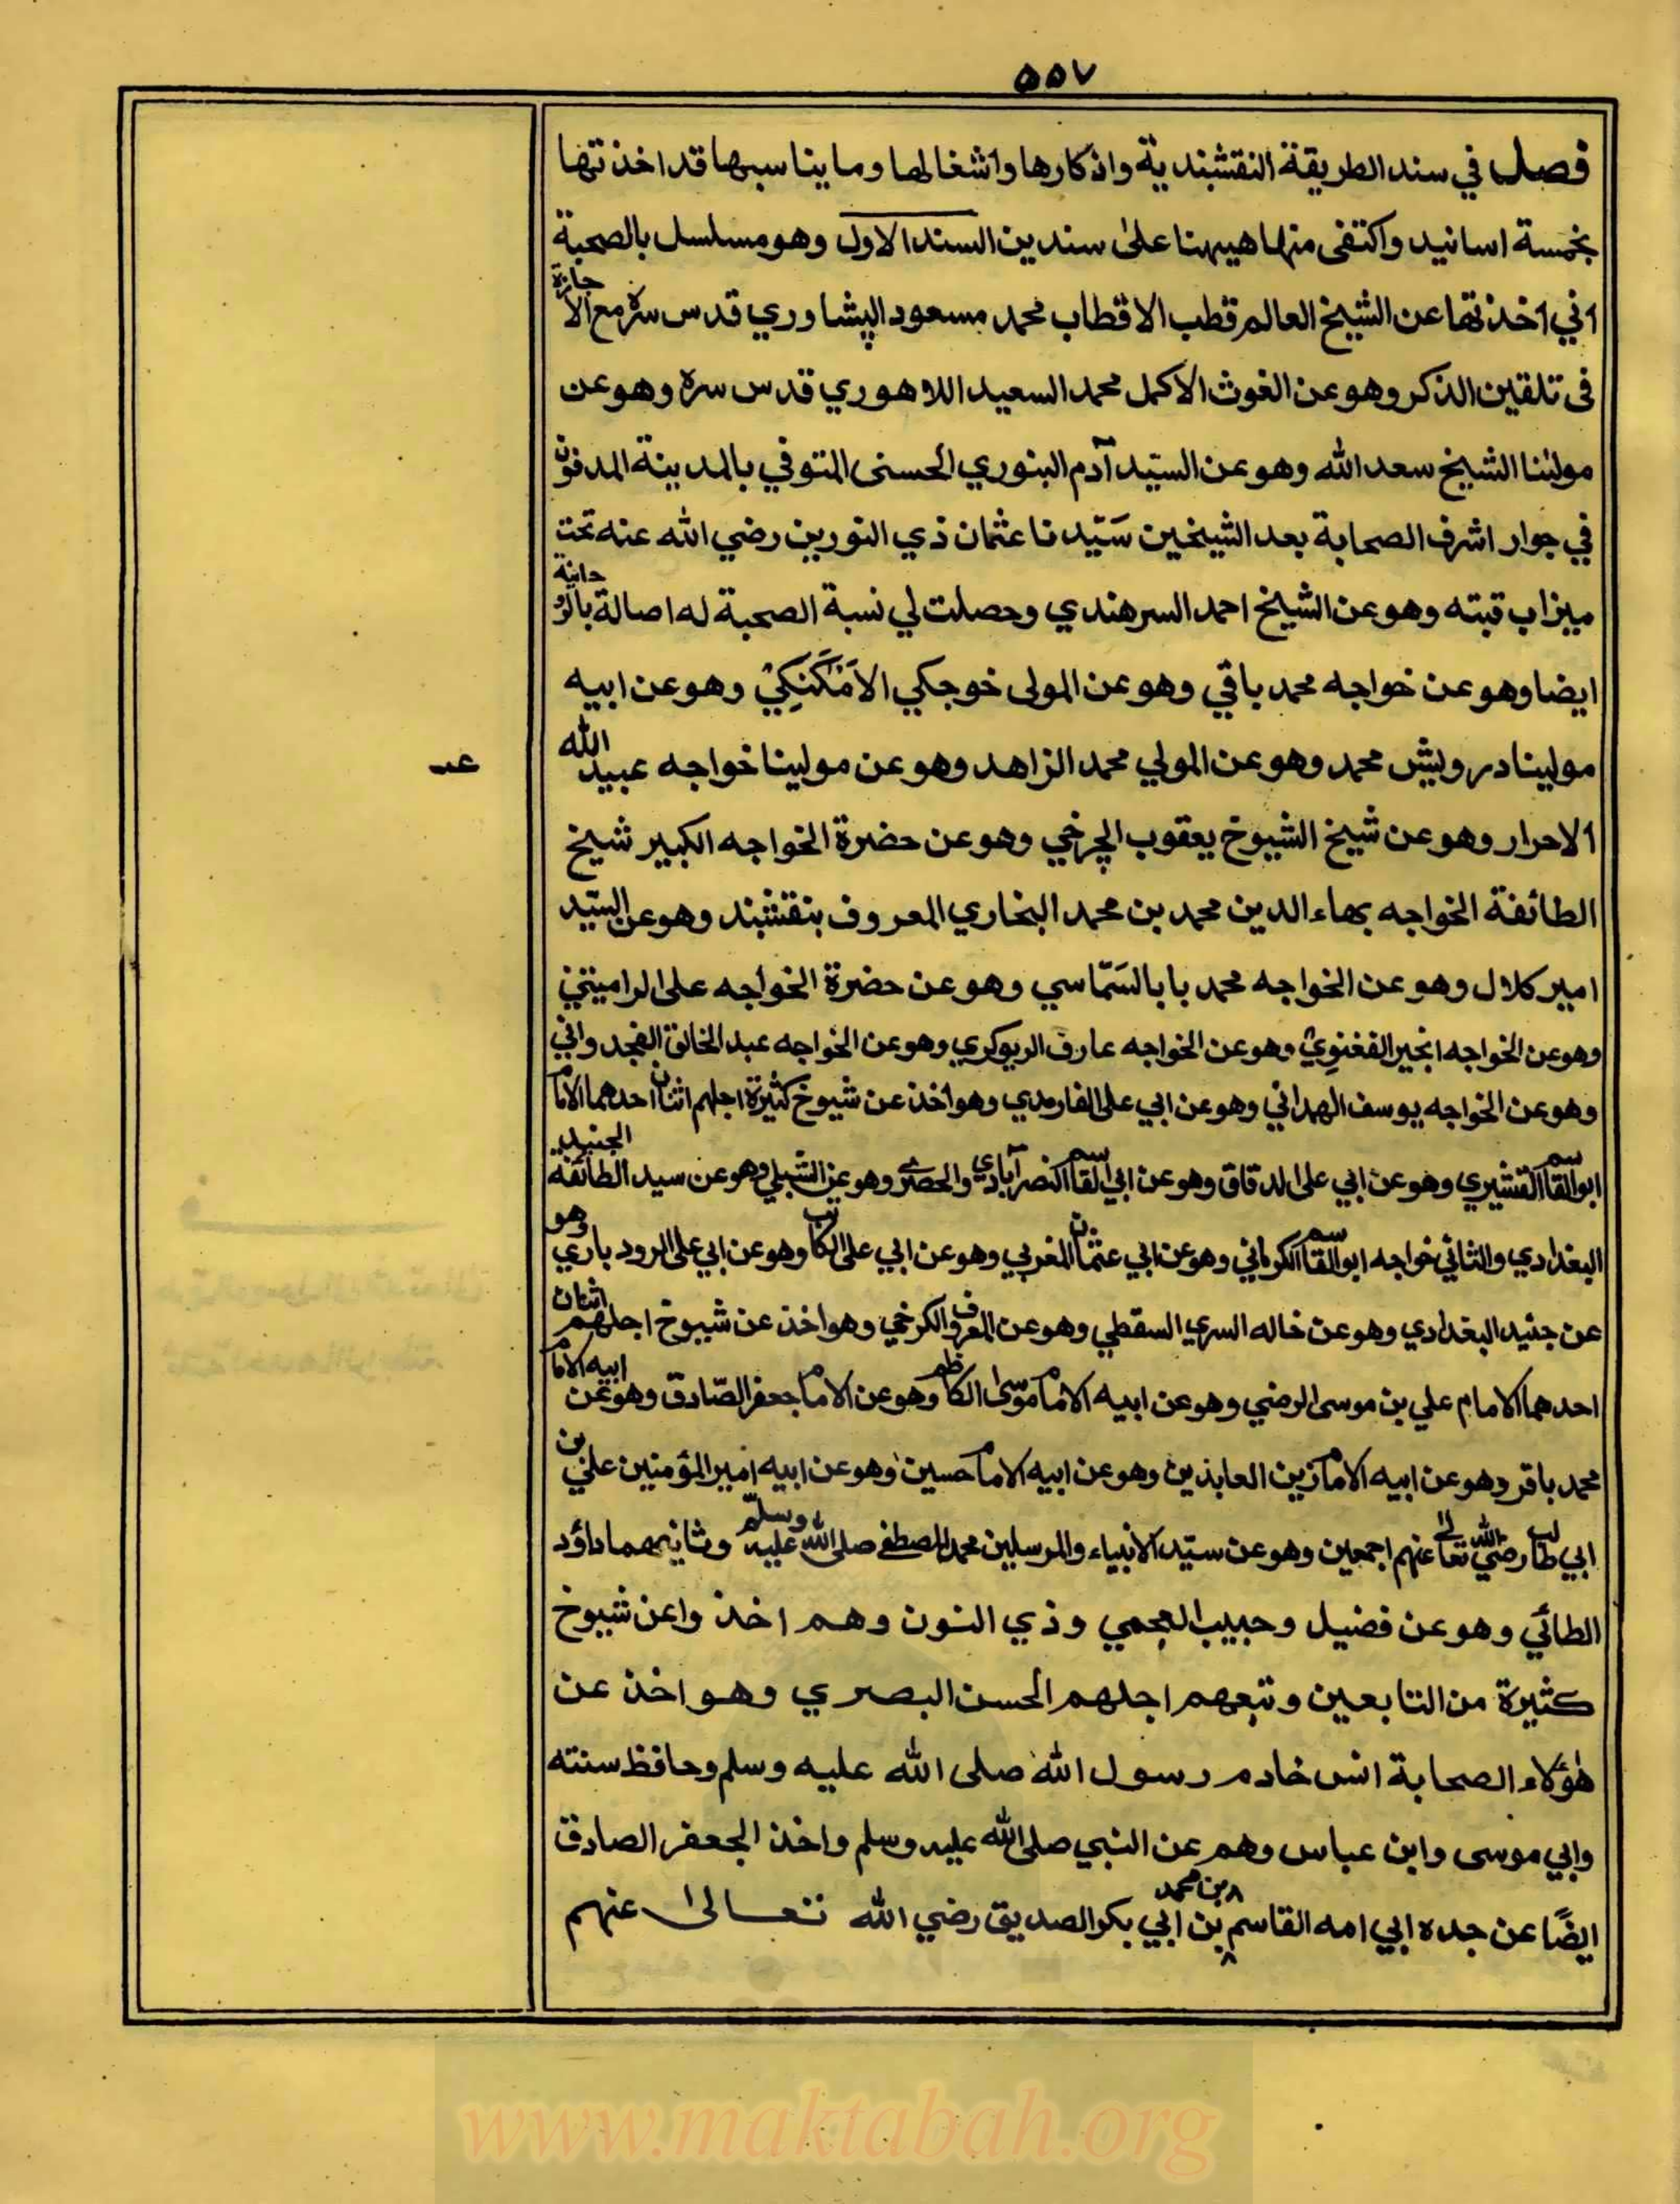 ٥٥٧
فصل في سند الطريقة النقشبندية واذكارها واشغالها وما يناسبها قد اخذتها
بخمسة اسانيد واكتفى منها هيهنا على سندين السند الاول وهو مسلسل بالصحبة
اني اخذتها عن الشيخ العالم قطب الاقطاب محمد مسعود الپشاوري قدس سره مع الاجازة
فى تلقين الذكر وهو عن الغوث الاكمل محمد السعيد اللاهوري قدس سره وهو عن
مولٰنا الشيخ سعد الله وهو عن السيّد آدم البنوري الحسنى المتوفي بالمدينة المدفون
في جوار اشرف الصحابة بعد الشيخين سَيّدنا عثمان ذي النورين رضي الله عنه تحت
ميزاب قبته وهو عن الشيخ احمد السرهندي وحصلت لي نسبة الصحبة له اصالة بالروحانية
ايضا وهو عن خواجه محمد باقي وهو عن المولى خوجكي الاَمْكَنِكِيْ وهو عن ابيه
مولينا درويش محمد وهو عن المولي محمد الزاهد وهو عن مولينا خواجه عبيد الله
عـ
الاحرار وهو عن شيخ الشيوخ يعقوب الچرخي وهو عن حضرة الخواجه الكبير شيخ
الطائفة الخواجه بهاء الدين محمد بن محمد البخاري المعروف بنقشبند وهو عن السيّد
امير كلال وهو عن الخواجه محمد بابا السَمّاسي وهو عن حضرة الخواجه على الراميتني
وهو عن الخواجه انجير الفغنوِيْ وهو عن الخواجه عارف الريوكري وهو عن الخواجه عبد الخالق الغجدواني
وهو عن الخواجه يوسف الهمداني وهو عن ابي على الفارمدي وهو اخذ عن شيوخ كثيرة اجلهم اثنان احدهما الامام
ابو القاسم القشيري وهو عن ابي على الدقاق وهو عن ابي القاسم النصرآبادي والحصري وهو عن الشبلي وهو عن سيد الطائفة الجنيد
البغدادي والثاني خواجه ابو القاسم الكرماني وهو عن ابي عثمان المغربي وهو عن ابي على الكاتب وهو عن ابي على الرودباري وهو
عن جنيد البغدادي وهو عن خاله السري السقطي وهو عن المعروف الكرخي وهو اخذ عن شيوخ اجلهم اثنان
احدهما الامام علي بن موسى الرضي وهو عن ابيه الامام موسٰى الكاظم وهو عن الامام جعفر الصّادق وهو عن ابيه الامام
محمد باقر وهو عن ابيه الامام زين العابدين وهو عن ابيه الامام حسين وهو عن ابيه امير المؤمنين علي بن
ابي طالب رضي الله تعالى عنهم اجمعين وهو عن سيّد الانبياء والمرسلين محمد المصطفى صلى الله عليه وسلّم وثانيهما داؤد
الطائي وهو عن فضيل وحبيب العجمي وذي النون وهم اخذوا عن شيوخ
كثيرة من التابعين وتبعهم اجلهم الحسن البصري وهو اخذ عن
هٰؤلاء الصحابة انس خادم رسول الله صلى الله عليه وسلم وحافظ سنته
وابي موسى وابن عباس وهم عن النبي صلى الله عليه وسلم واخذ الجعفر الصادق
ايضًا عن جده ابي امه القاسم بن محمد بن ابي بكر الصديق رضي الله تعالىٰ عنهم
www.maktabah.org